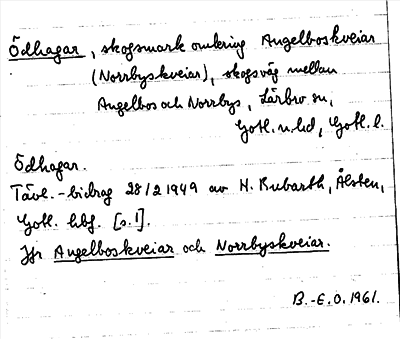 Ödhagar, skogsmark omkring Angelboskveiar
(Norrbyskveiar), skogsväg mellan
Angelbos och Norrbys, Lärbro sn,
Gotl. n. hd, Gotl. l.
Ödhagar.
Tävl.-bidrag 28/2 1949 av H. Kubarth, Ålsten,
Gotl. hbf. [s. 1].
Jfr Angelboskveiar och Norrbyskveiar.
B.-E.O. 1961.